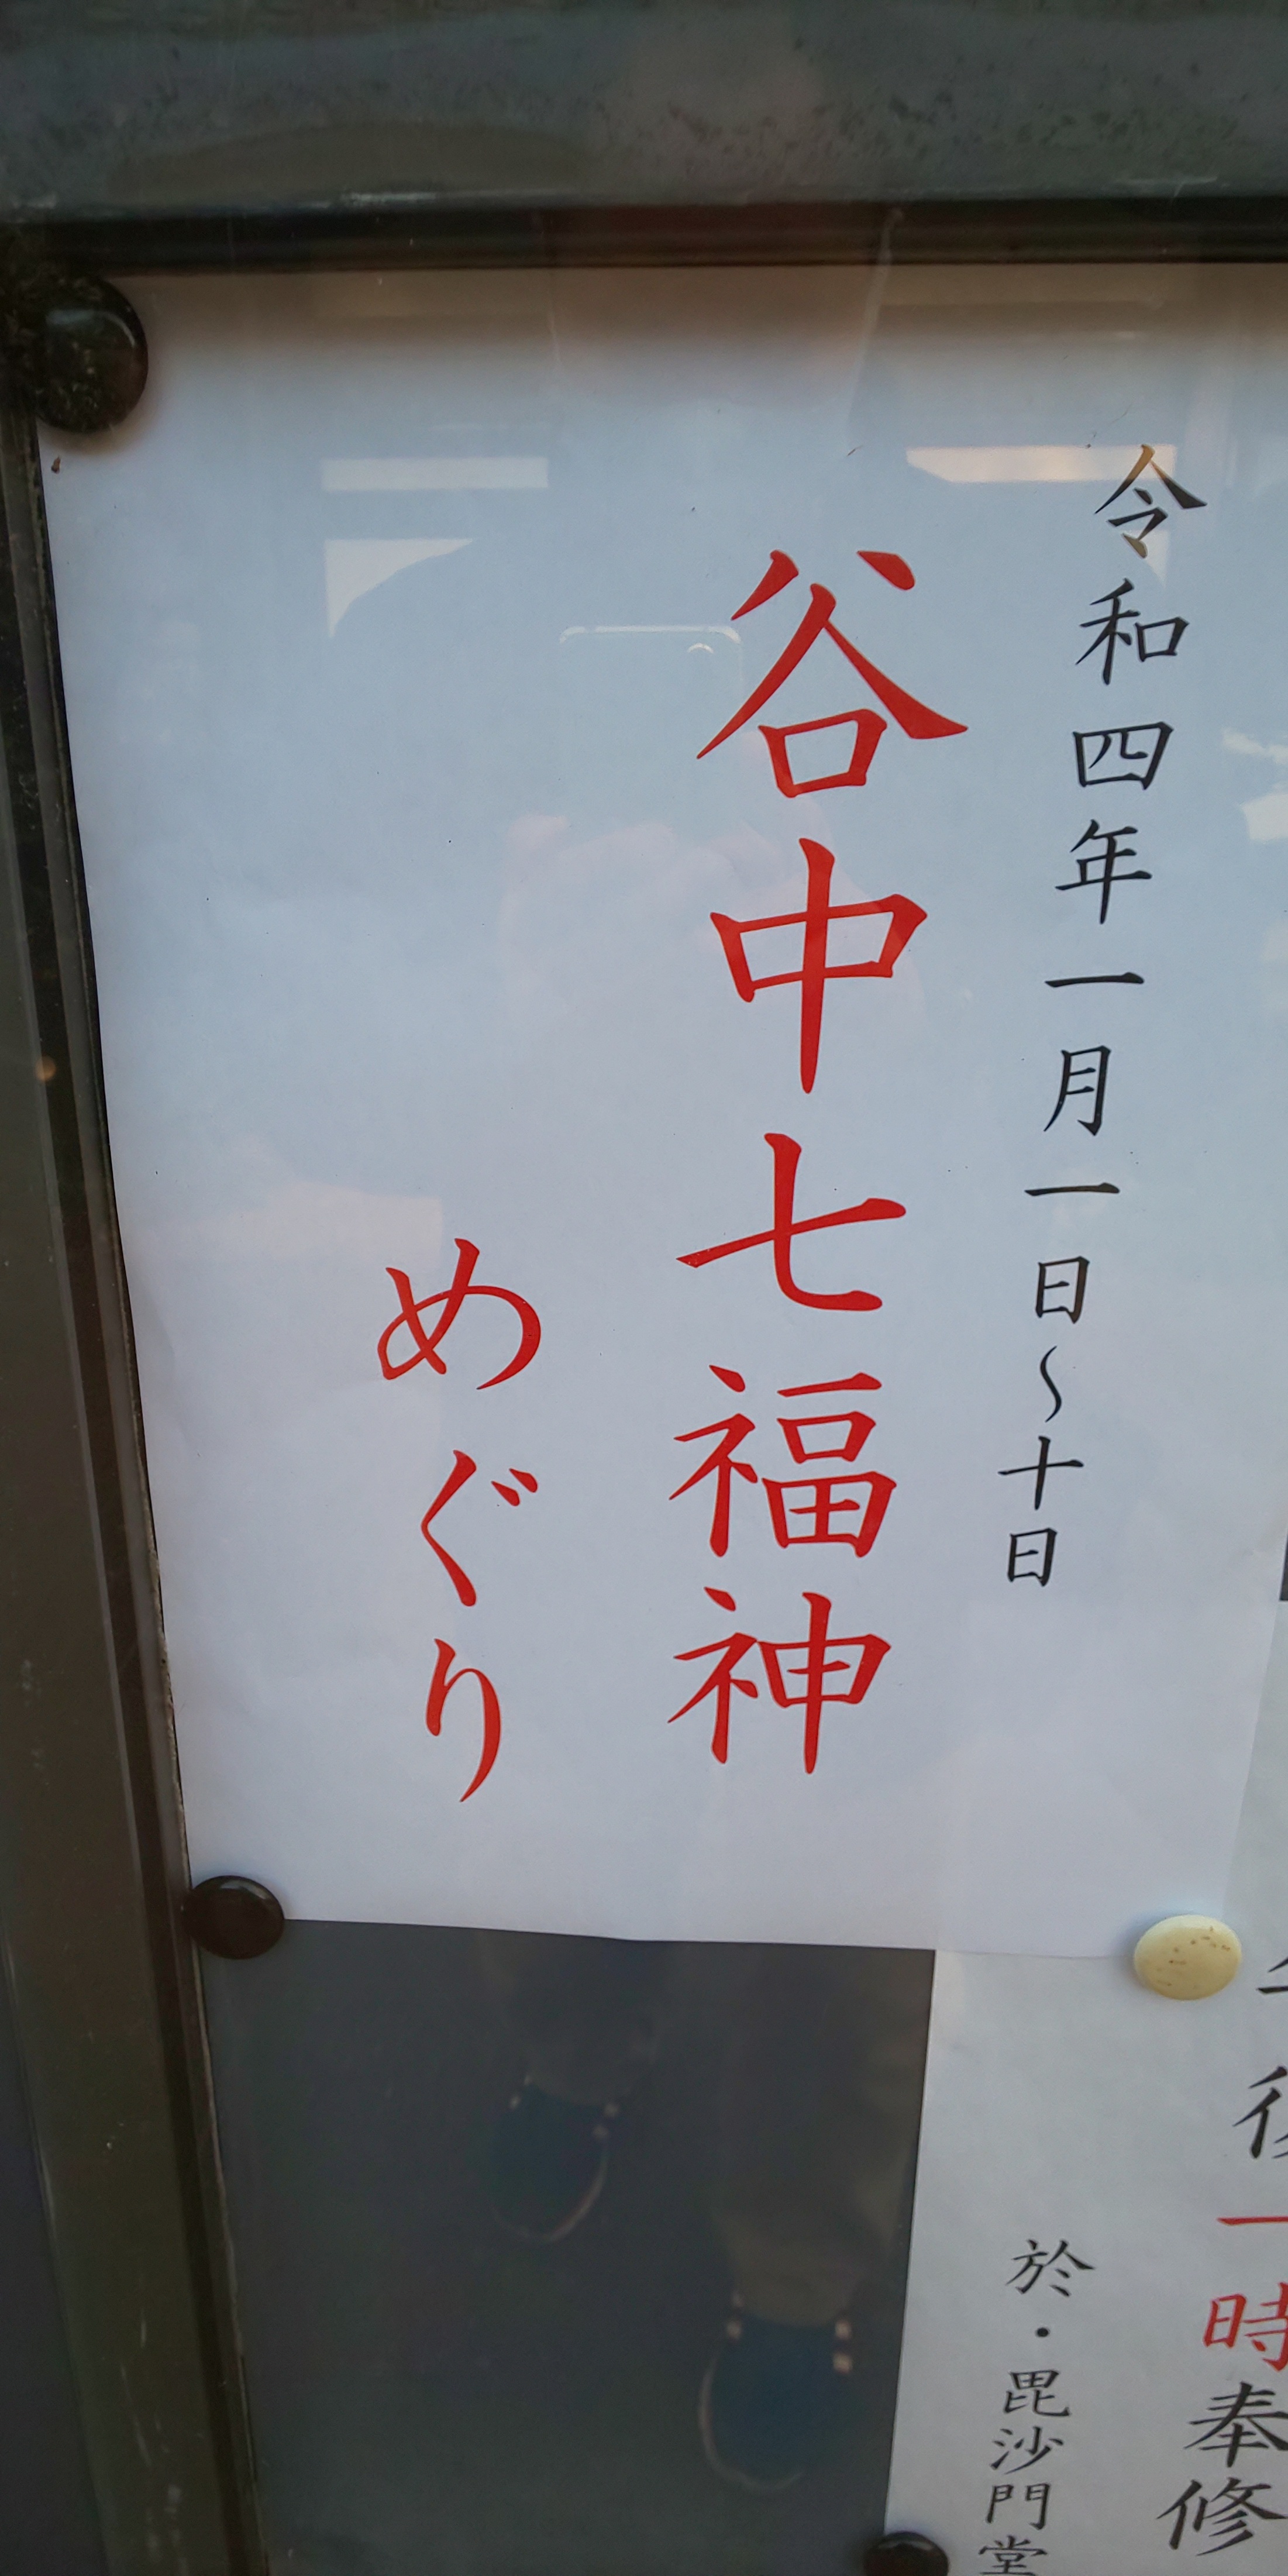 令和四年一月一日～十日
谷中七福神
めぐり
一時奉修
於・毘沙門堂